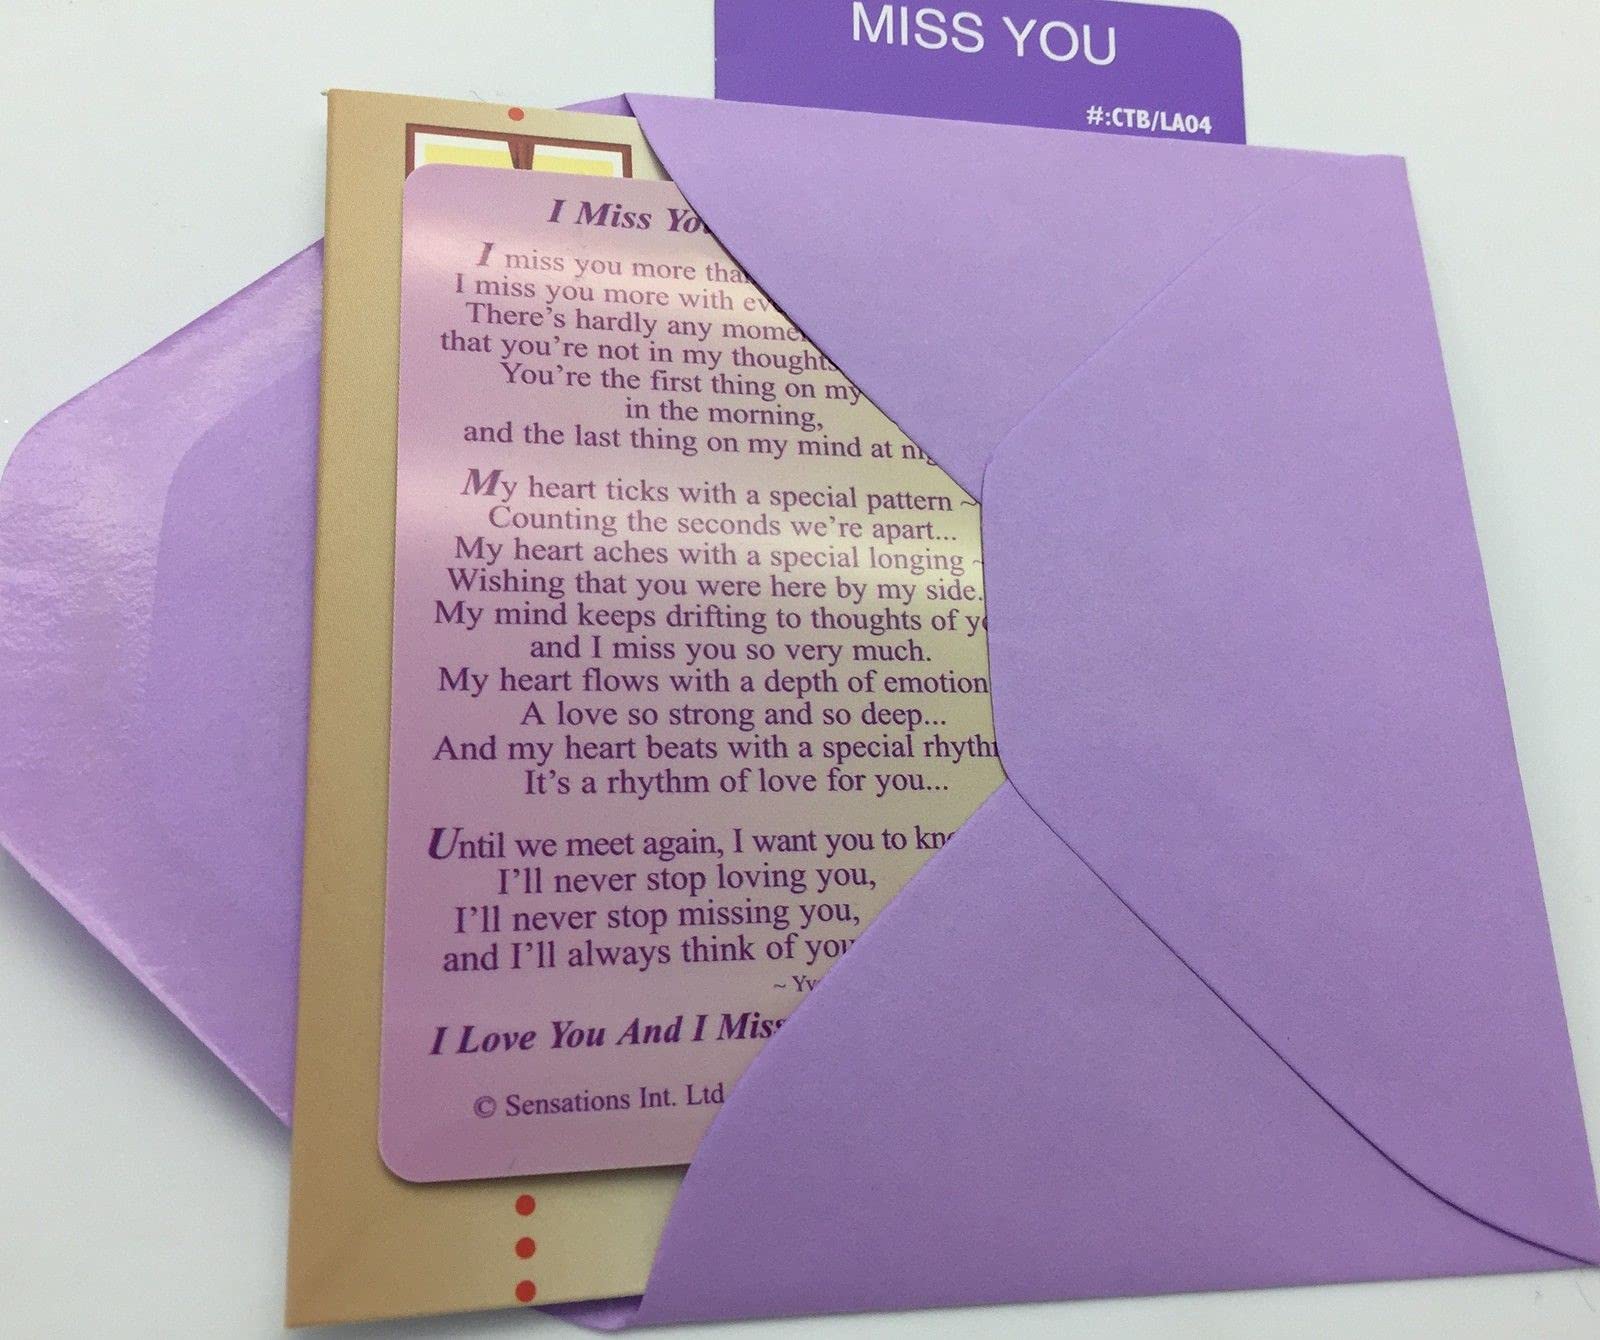 MISS YOU
#:CTB/LA04
I Miss
I miss you more
I miss you more with
There's hardly any
that you're not in my thoughts
You're the first thing on my
in the morning,
and the last thing on my mind at
My heart ticks with a special pattern ~
Counting the seconds we're apart...
My heart aches with a special longing ~
Wishing that you were here by my side.
My mind keeps drifting to thoughts of
and I miss you so very much.
My heart flows with a depth of emotion
A love so strong and so deep...
And my heart beats with a special
It's a rhythm of love for you...
Until we meet again, I want you to
I'll never stop loving you,
I'll never stop missing you,
and I'll always think of you
~
I Love You And I Miss
© Sensations Int. Ltd